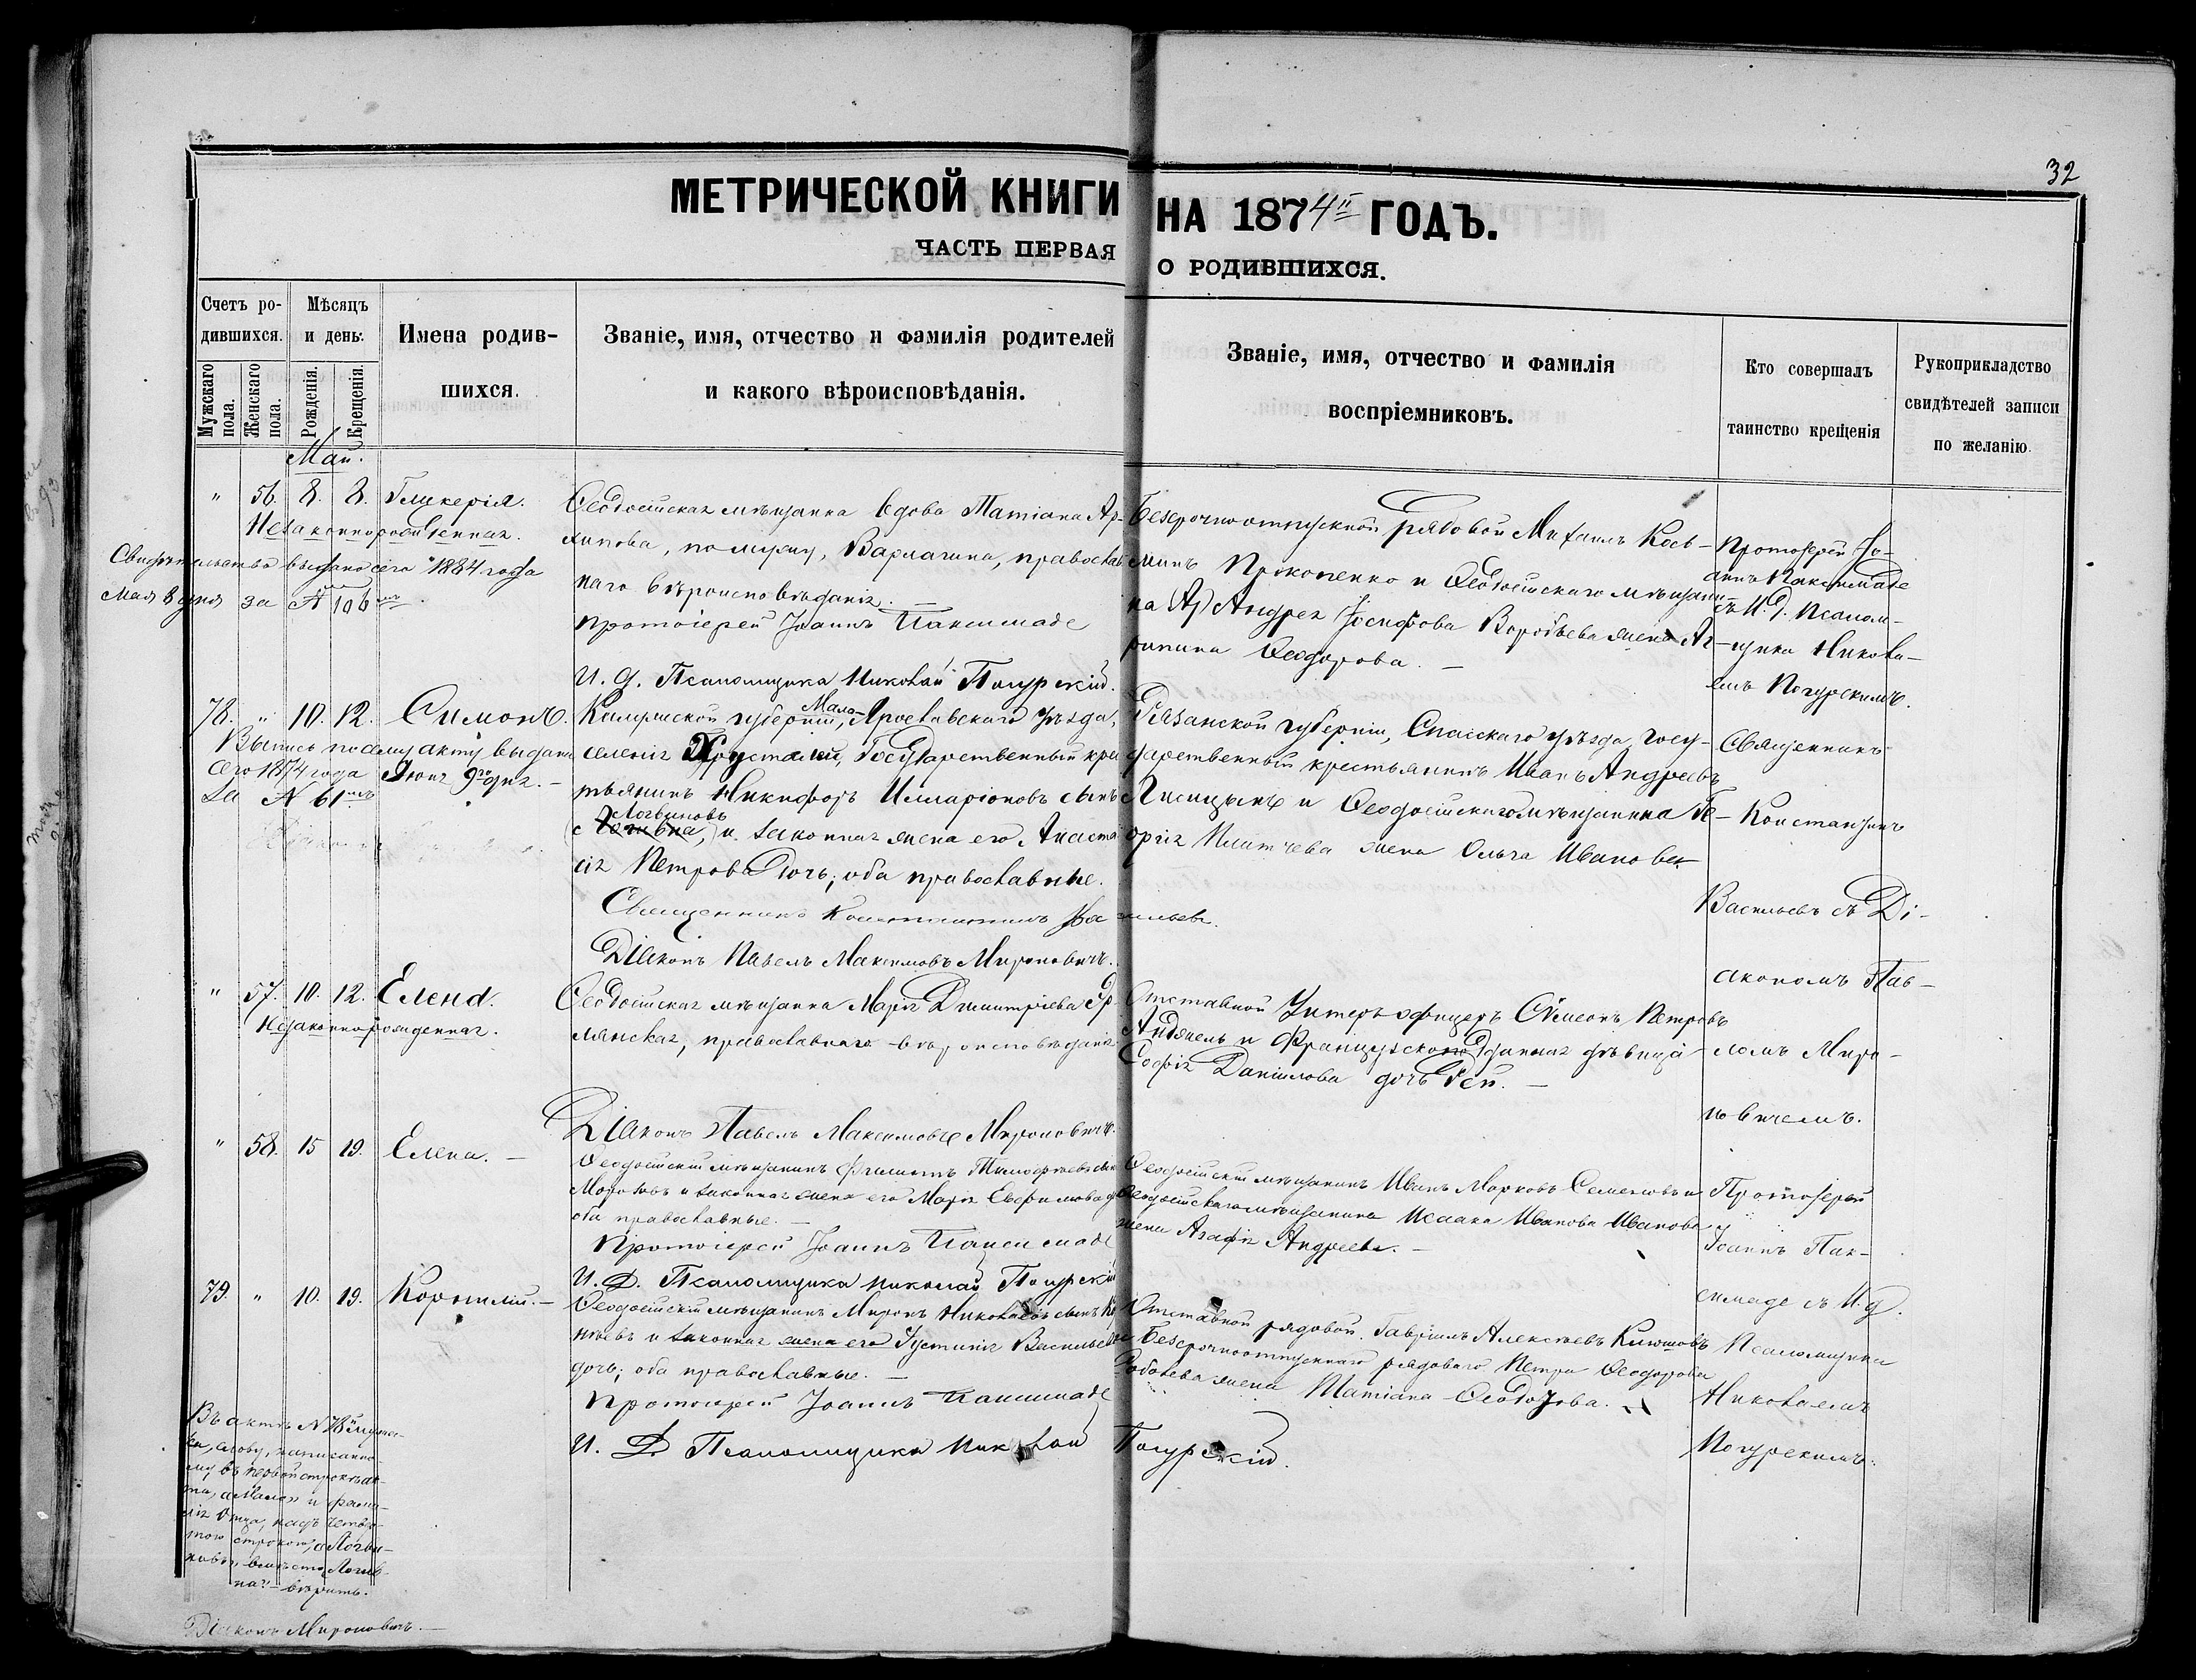 32
МЕТРИЧЕСКОЙ КНИГИ НА 1874й ГОДЪ.
ЧАСТЬ ПЕРВАЯ О РОДИВШИХСЯ.
Счетъ родившихся.
Мужскаго пола.
Женскаго пола.
Мѣсяцъ и день:
Рожденія.
Крещенія.
Имена родившихся.
Званіе, имя, отчество и фамилія родителей
и какого вѣроисповѣданія.
Званіе, имя, отчество и фамилія
воспріемниковъ.
Кто совершалъ
таинство крещенія
Рукоприкладство
свидѣтелей записи
по желанію.
Май.
" 56. 8. 8. Гликерія.
Незаконнорожденная.
Свидѣтельство выдано сего 1884 года
Мая 8 дня за № 106мъ
Ѳеодосійская мѣщанка вдова Татіана Ар-
хипова, по мужу, Вармагина, православ-
наго вѣроисповѣданія. —
Протоіерей Іоаннъ Паксимаде
И. д. Псаломщика Николай Погурскій.
Безсрочноотпускной рядовой Михаилъ Кось-
минъ Прокопенко и Ѳеодосійскаго мѣщани-
на Андрея Іосифова Воробьева жена Аг-
рипина Ѳеодорова. —
Протоіерей Іо-
аннъ Паксимаде
съ И. д. Псалом-
щика Никола-
емъ Погурскимъ.
78. " 10. 12. Симонъ.
Выпись по сему акту выдана
сего 1874 года Іюня 9го дня. —
за № 61мъ
губерніи, Мало-Ярославскаго уѣзда,
селенія Государственный крес-
тьянинъ Никифоръ Илларіоновъ сынъ
Логвиновъ
и законная жена его Анаста-
сія Петрова дочь; оба православные.
Священникъ Константинъ Васильевъ.
Діаконъ Павелъ Максимовъ Мироновичъ.
Рязанской губерніи, Спасскаго уѣзда, госу-
дарственный крестьянинъ Иванъ Андреевъ
Лисицынъ и Ѳеодосійскаго мѣщанина Ге-
оргія жена Ольга Иванова
Священникъ
Константинъ
Васильевъ съ Ді-
акономъ Пав-
ломъ Миро-
новичемъ.
" 57. 10. 12. Елена.
Незаконнорожденная.
Ѳеодосійская мѣщанка Марія Димитріева
православнаго вѣроисповѣданія
Діаконъ Павелъ Максимовъ Мироновичъ.
Отставной Унтеръ-офицеръ Сѵмеонъ Петровъ
и Французско подданная дѣвица
Софія Данилова дочь Гей. —
" 58. 15 19. Елена. —
Ѳеодосійскій мѣщанинъ Филиппъ Тимофѣевъ сынъ
Морозовъ и законная жена его Марія Евфимова дочь
оба православные. —
Протоіерей Іоаннъ Паксимаде
И. Д. Псаломщика Николай Погурскій
Ѳеодосійскій мѣщанинъ Иванъ Марковъ Семеновъ и
Ѳеодосійскаго мѣщанина Исаака Иванова Иванова
жена Агафія Андреева. —
Протоіерей
Іоаннъ Пак-
симаде съ И. д.
Псаломщика
Николаемъ
Погурскимъ.
79. " 10. 19. Корнилій. —
Ѳеодосійскій мѣщанинъ Миронъ Николаевъ сынъ
и законная жена его Іустинія Васильева
дочь; оба православные. —
Протоіерей Іоаннъ Паксимаде
И. Д. Псаломщика Николай Погурскій.
Отставной рядовой Гавріилъ Алексѣевъ Климовъ
и Безсрочноотпускнаго рядоваго Петра Ѳеодорова
жена Татіана Ѳеодорова.
Въ актѣ № 78й мужес-
ка, слову, написанно-
му въ первой строкѣ ак-
та, "Мало" и фами-
лія отца, надъ четвер-
тою строкою, "Логви-
новъ", вмѣсто "Логив-
на" — вѣрить.
Діаконъ Мироновичъ. —